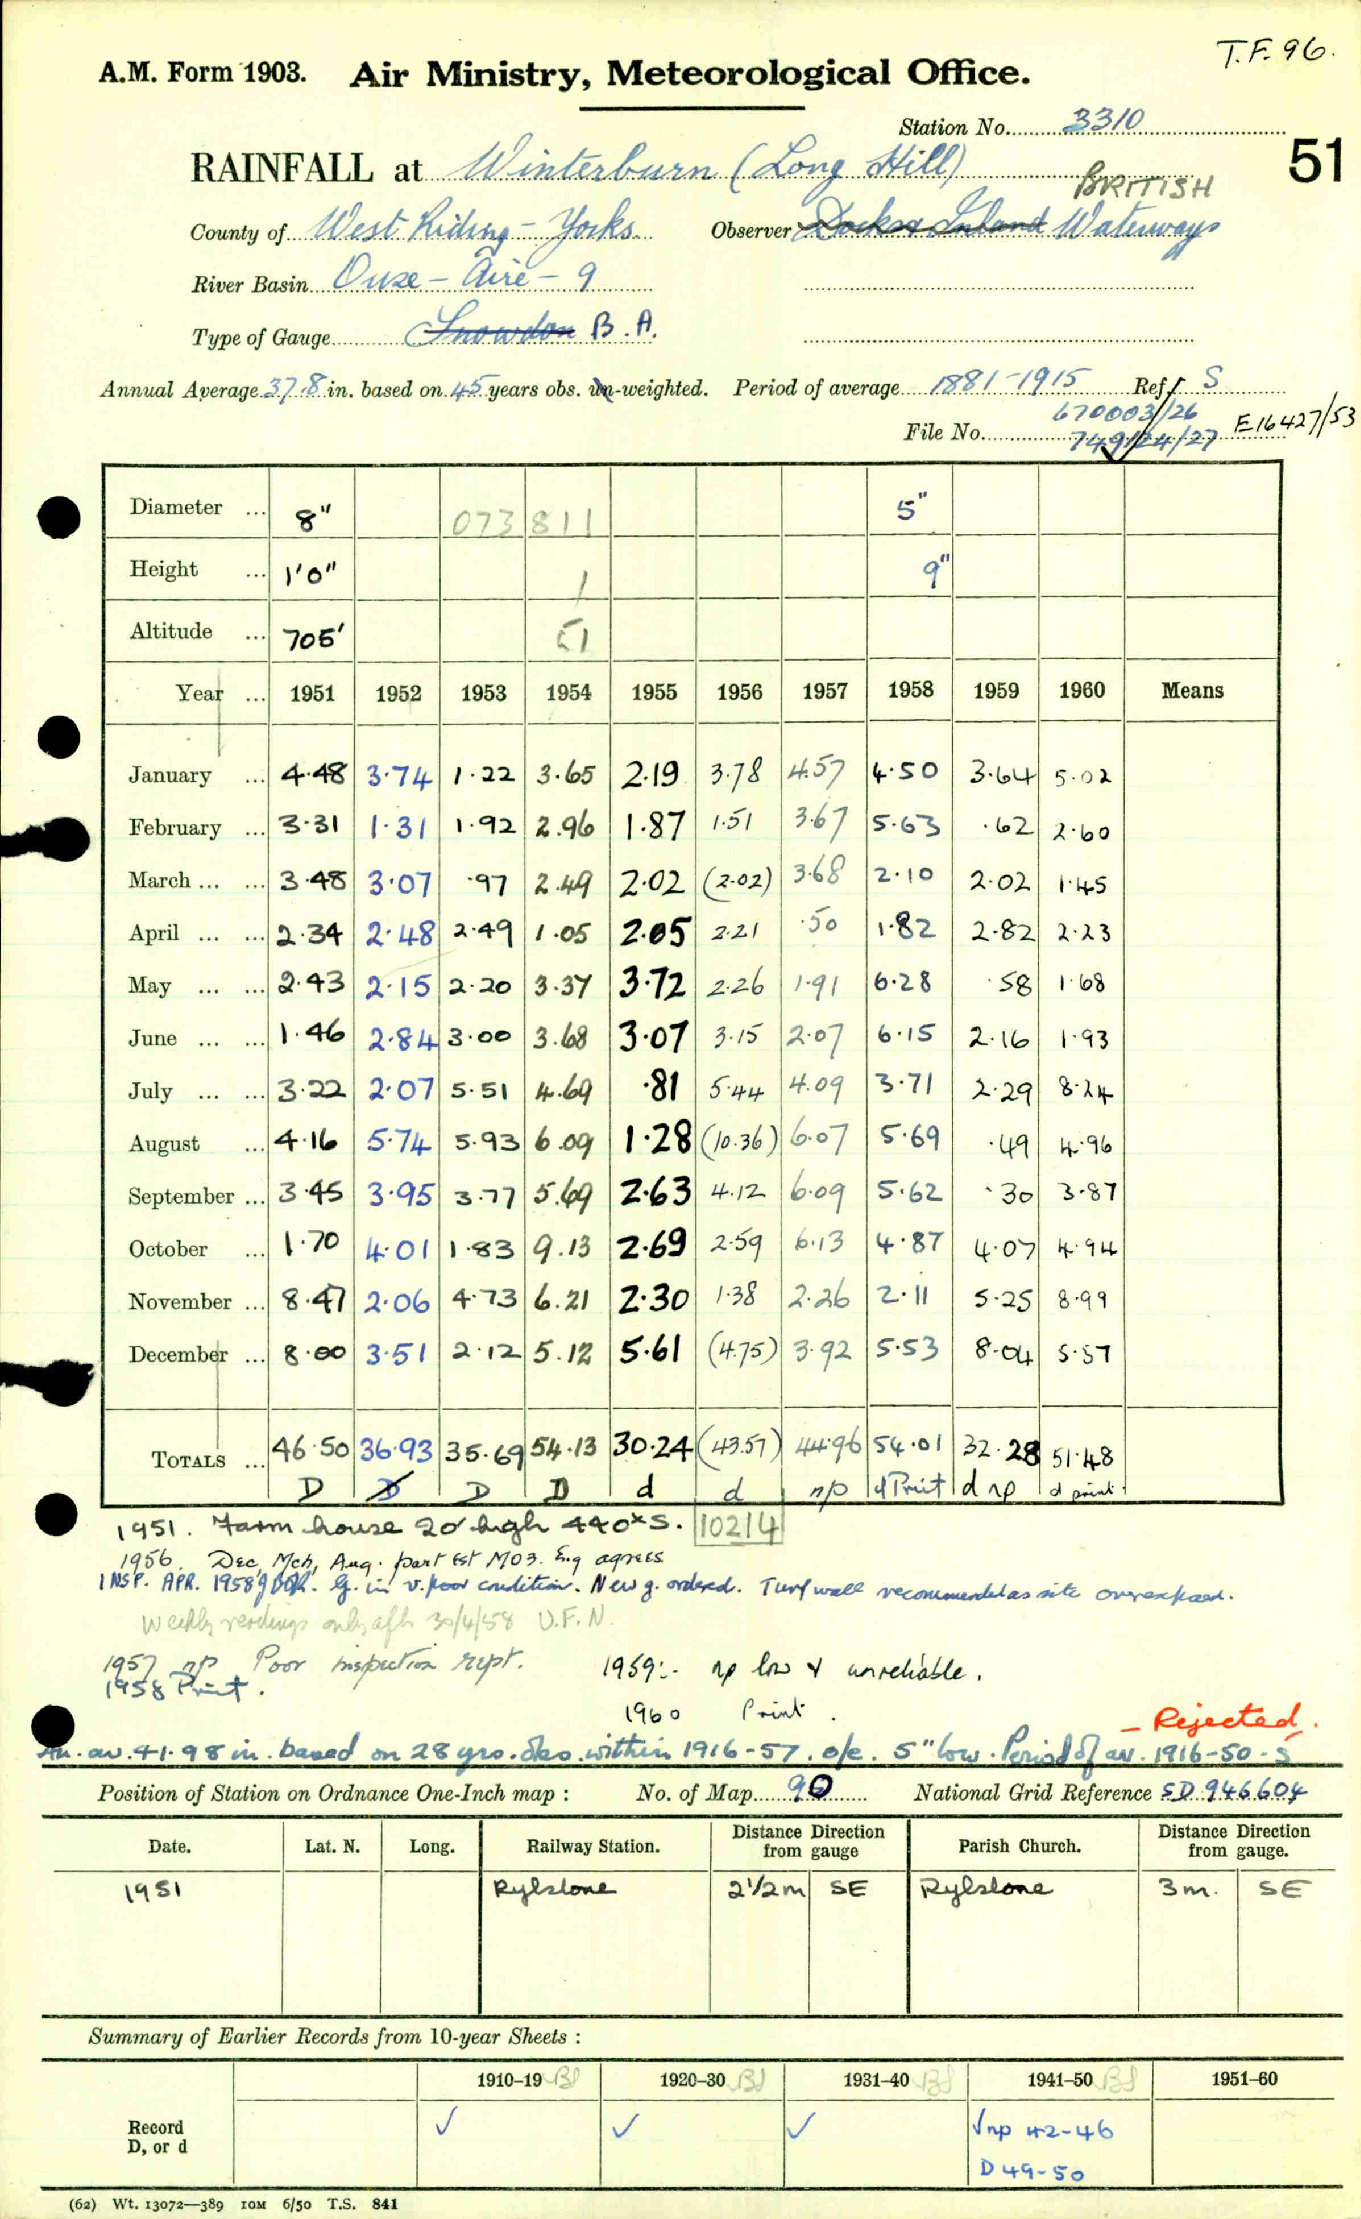 T.F. 96.
A.M. Form 1903. Air Ministry, Meteorological Office.
Station No. 3310
51
RAINFALL at Winterburn (Long Hill)
BRITISH
County of West Riding - Yorks. Observer Docks & Inland Waterways
River Basin Ouse - Aire - 9
Type of Gauge Snowdon B.A.
Annual Average 37.8 in. based on 45 years obs. un-weighted. Period of average 1881-1915 Ref. S
670003/26
File No. 749124/27 E16427/53
Diameter ... 8" 073 811 5"
Height ... 1'0" 1 9"
Altitude ... 705' 51
Year ... 1951 1952 1953 1954 1955 1956 1957 1958 1959 1960 Means
January ... 4.48 3.74 1.22 3.65 2.19 3.78 4.57 4.50 3.64 5.02
February ... 3.31 1.31 1.92 2.96 1.87 1.51 3.67 5.63 .62 2.60
March ... ... 3.48 3.07 .97 2.49 2.02 (2.02) 3.68 2.10 2.02 1.45
April ... ... 2.34 2.48 2.49 1.05 2.05 2.21 .50 1.82 2.82 2.23
May ... ... 2.43 2.15 2.20 3.37 3.72 2.26 1.91 6.28 .58 1.68
June ... ... 1.46 2.84 3.00 3.68 3.07 3.15 2.07 6.15 2.16 1.93
July ... ... 3.22 2.07 5.51 4.69 .81 5.44 4.09 3.71 2.29 8.24
August ... 4.16 5.74 5.93 6.09 1.28 (10.36) 6.07 5.69 .49 4.96
September ... 3.45 3.95 3.77 5.69 2.63 4.12 6.09 5.62 .30 3.87
October ... 1.70 4.01 1.83 9.13 2.69 2.59 6.13 4.87 4.07 4.94
November ... 8.47 2.06 4.73 6.21 2.30 1.38 2.26 2.11 5.25 8.99
December ... 8.00 3.51 2.12 5.12 5.61 (4.75) 3.92 5.53 8.04 5.57
TOTALS ... 46.50 36.93 35.69 54.13 30.24 (43.57) 44.96 54.01 32.28 51.48
D D D D d d np d Print d np d print
1951. Farm house 20' high 440x S. 10214
1956. Dec, Mch, Aug. part est MO3. Eng agrees
INSP. APR. 1958 G. in v. poor condition. New g. ordered. Turf wall recommended as site overexposed.
Weekly readings only after 30/4/58 U.F.N.
1957 np Poor inspection rept. 1959:- np low & unreliable.
1958 Print.
1960 Print.
- Rejected.
An. av. 41.98 in. based on 28 yrs. obs. within 1916-57. o/e. 5" low. Period of av. 1916-50 - S
Position of Station on Ordnance One-Inch map : No. of Map 90 National Grid Reference SD 946604
Date. Lat. N. Long. Railway Station. Distance from gauge Direction Parish Church. Distance from gauge. Direction
1951 Rylstone 2 1/2 m SE Rylstone 3 m. SE
Summary of Earlier Records from 10-year Sheets :
1910-19 1920-30 1931-40 1941-50 1951-60
Record
D, or d
✓ ✓ ✓ ✓ np 42-46
D 49-50
(62) Wt. 13072—389 10M 6/50 T.S. 841